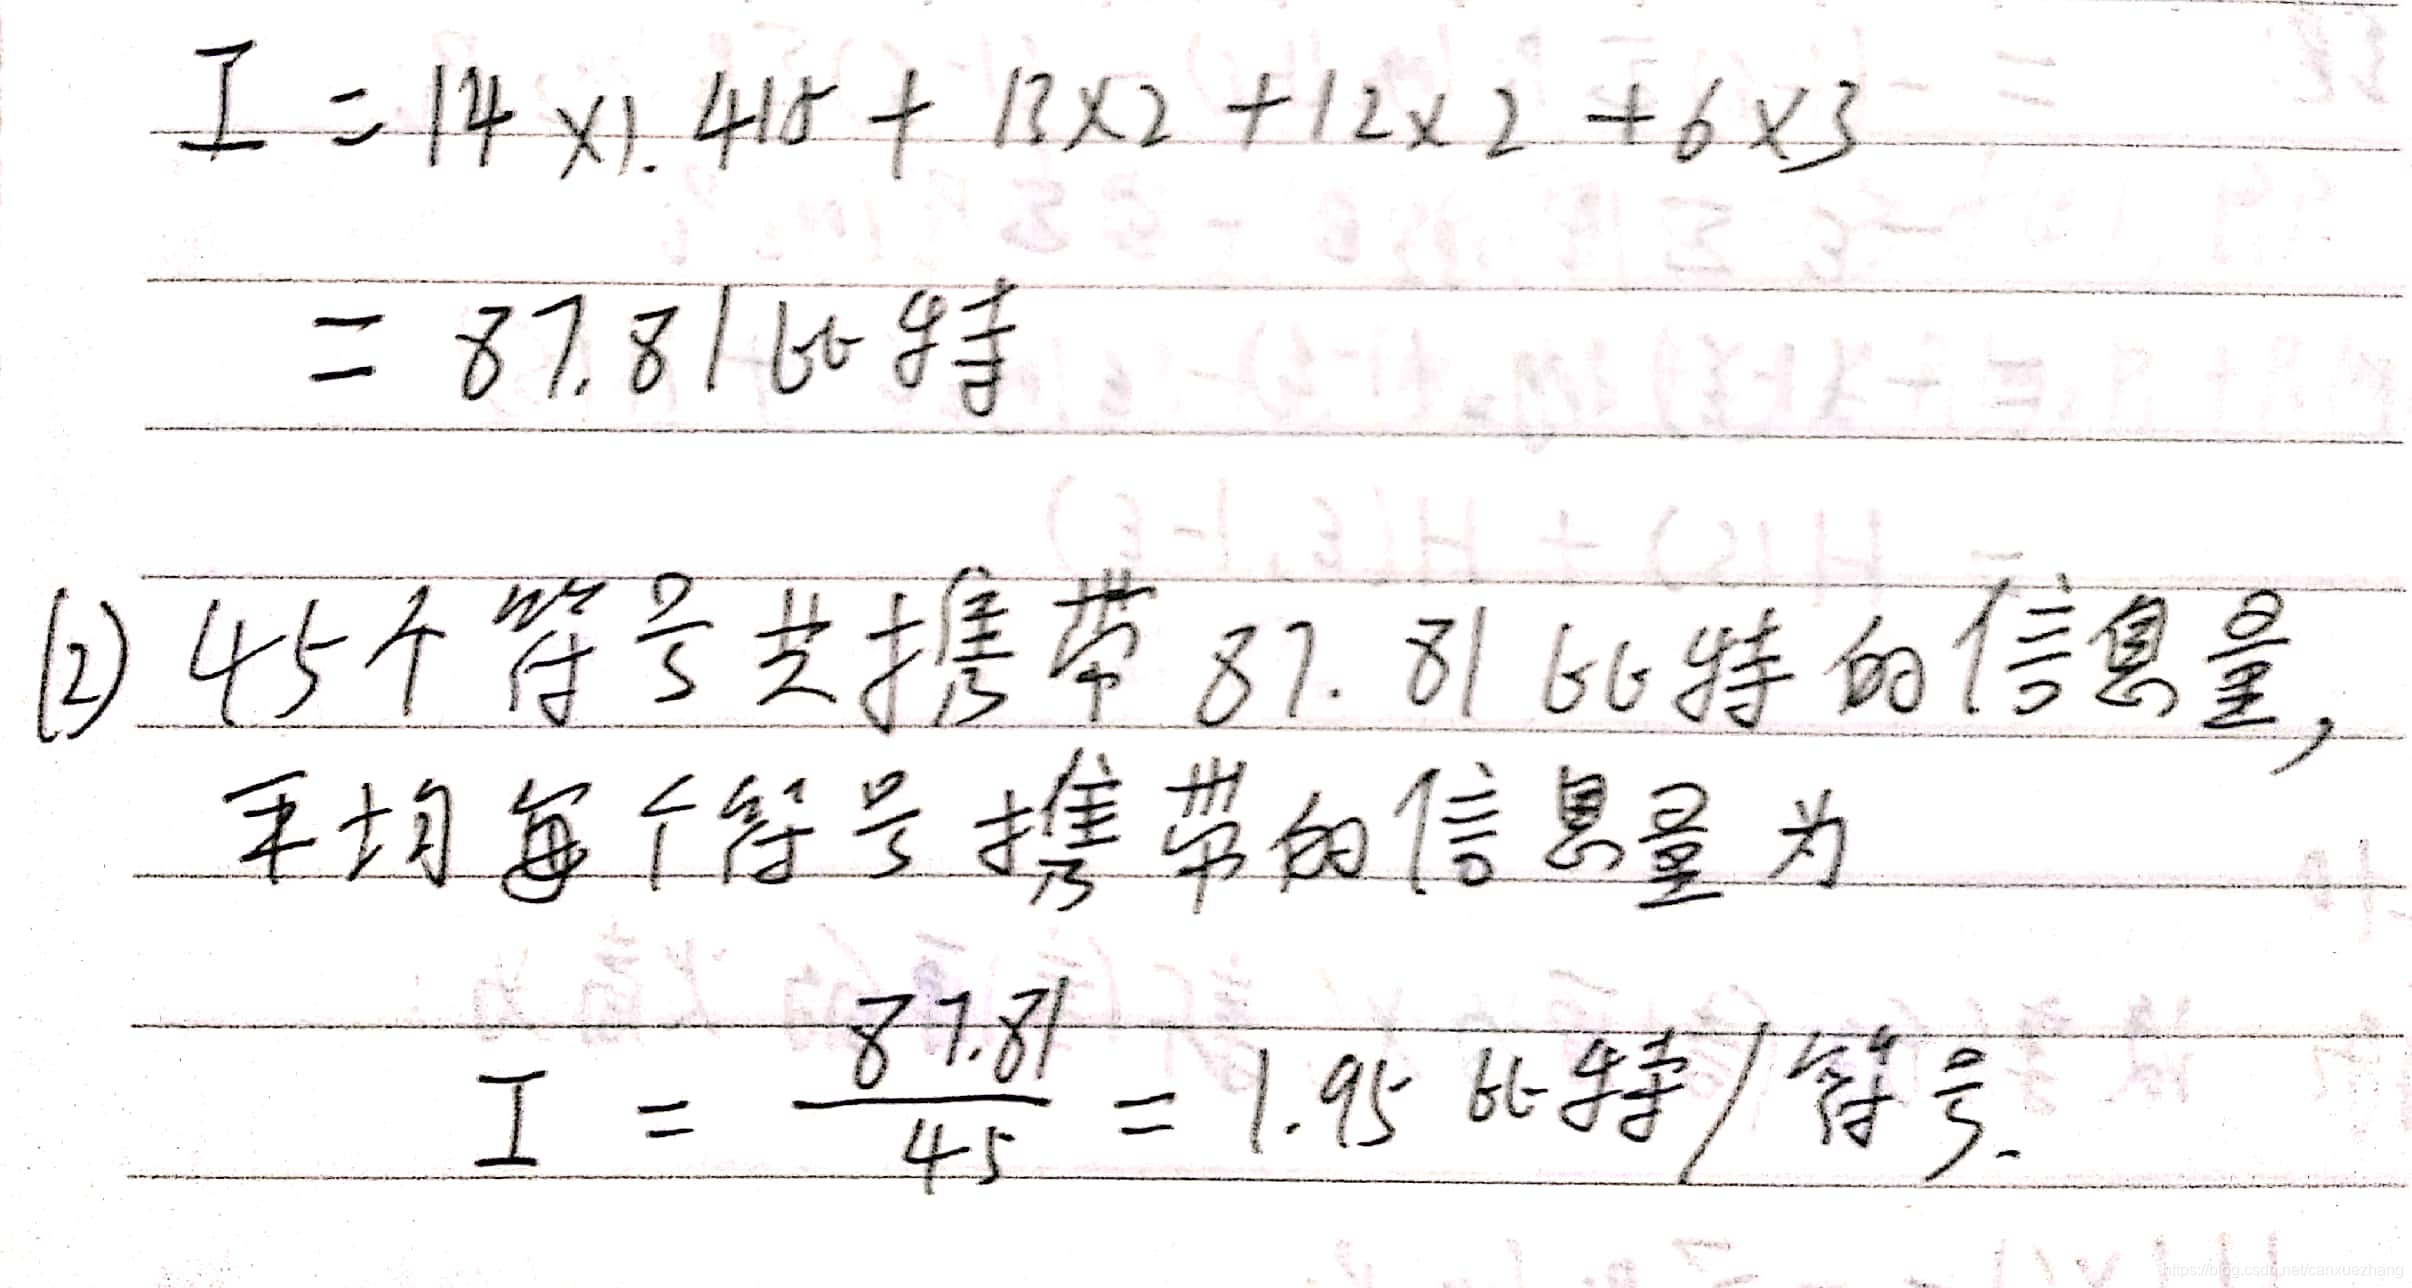 I = 14 × 1.415 + 13×2 + 12×2 + 6×3
= 87.81比特
(2) 45个符号共携带87.81比特的信息量,
平均每个符号携带的信息量为
I = 87.81/45 = 1.95比特/符号.
https://blog.csdn.net/canxuezhang